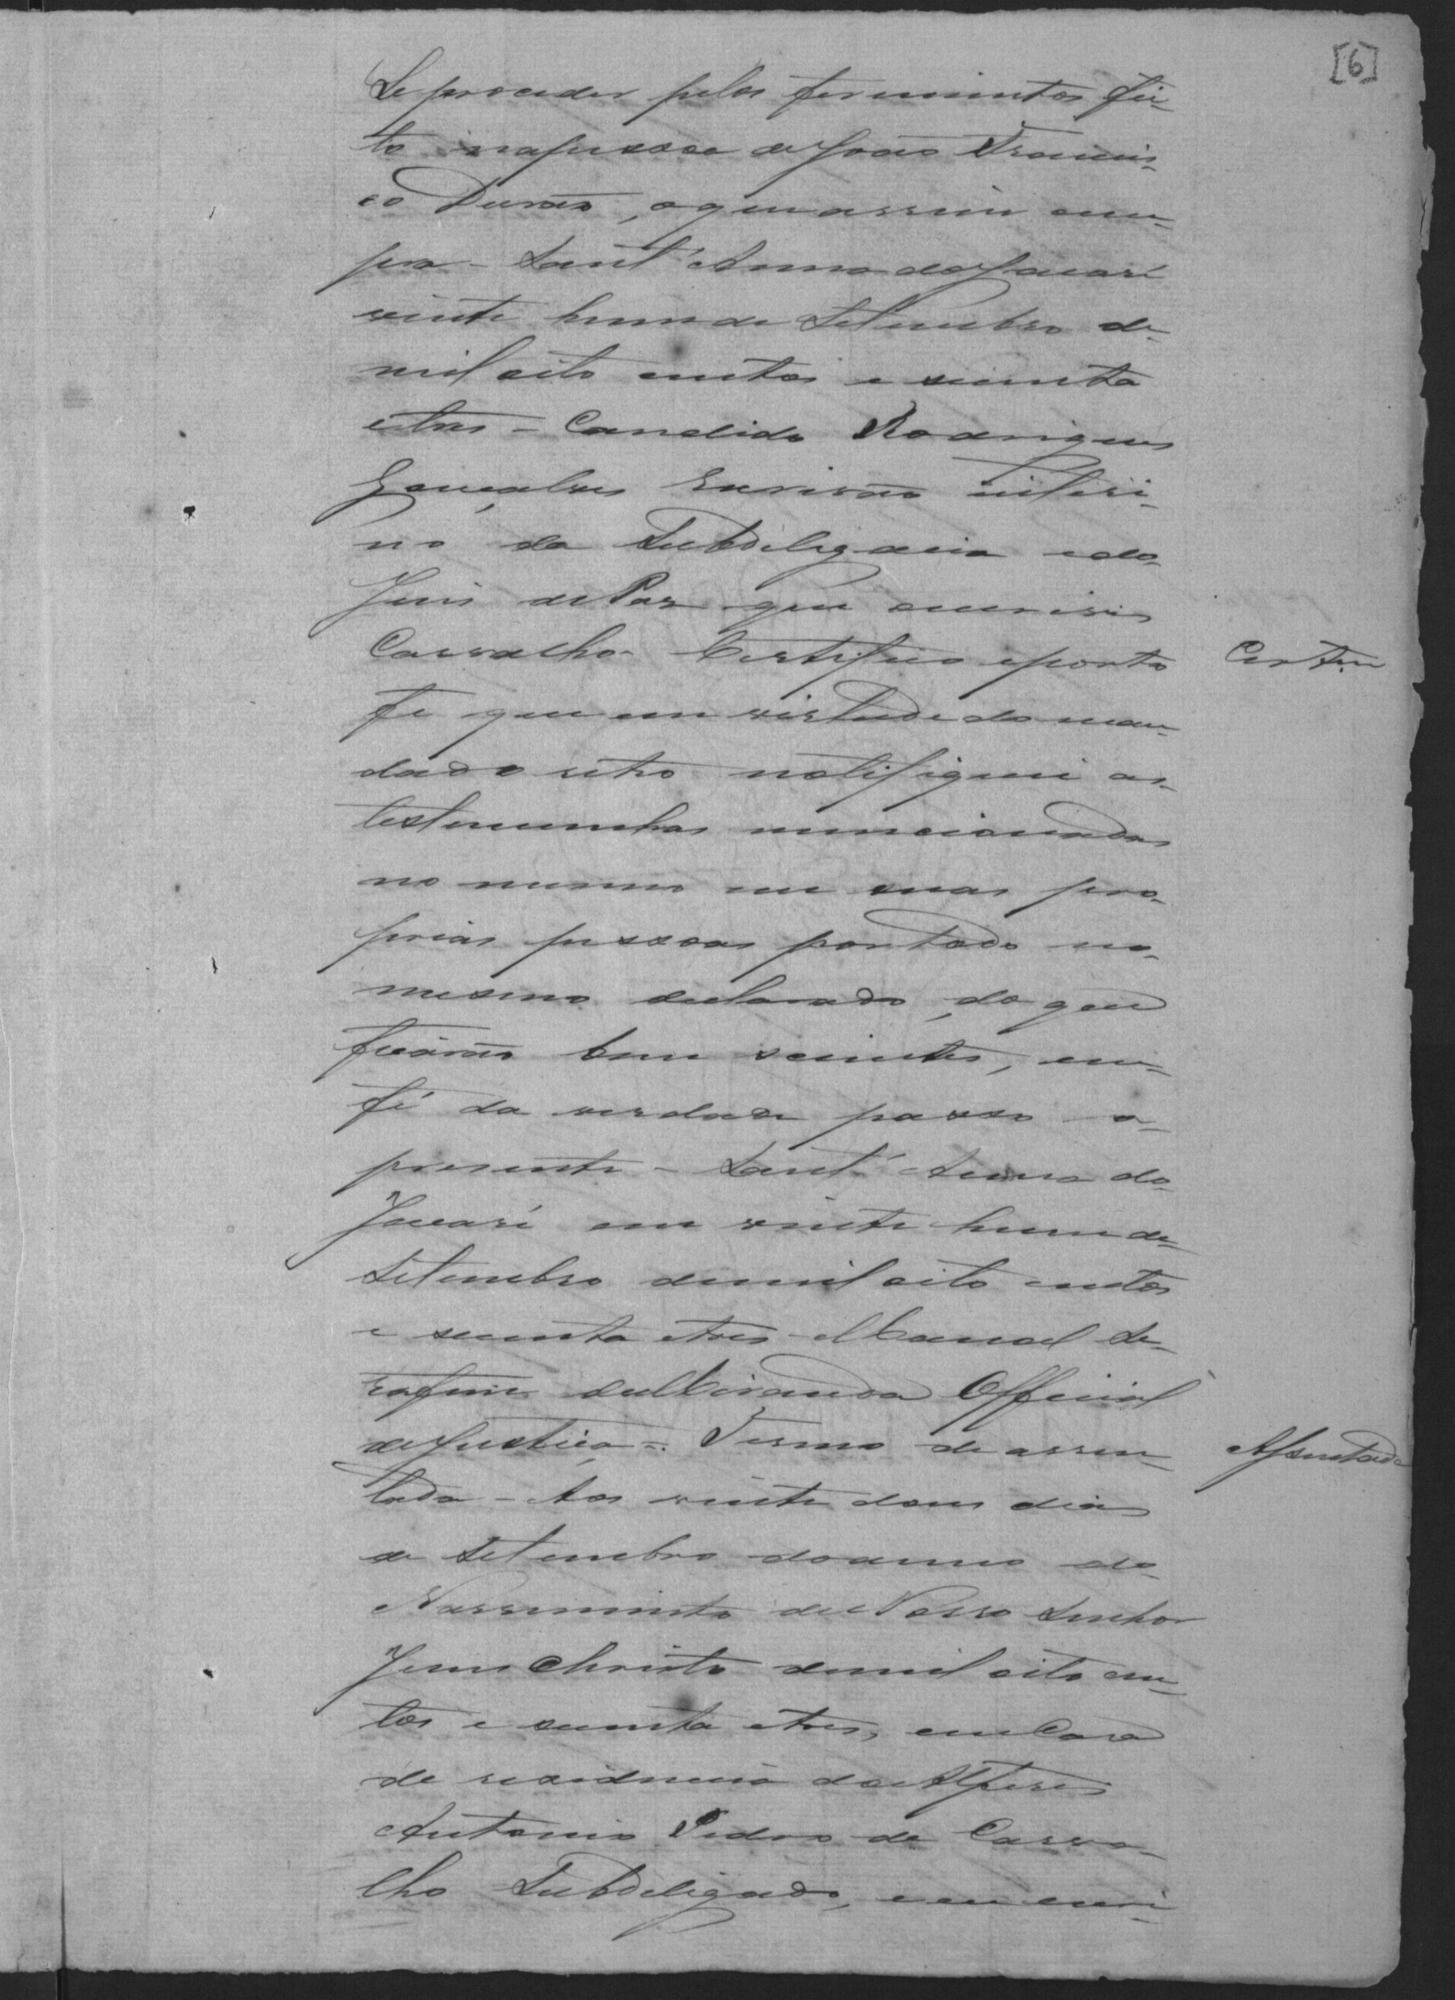 [6]
Se proceder pelos ferimentos fei-
to na pessoa de João Francis-
co Durão, o que assim cum-
pra - Sant'Anna do Jacaré
vinte hum de Setembro de
mil oito centos e secenta
e tres - Candido Rodrigues
Gonçalves Escrivão interi-
no da Subdelegacia e do
Juis de Paz que escrevi
Carvalho - Certifico e porto
Certam
fé que em virtude do man-
dado retro notifiquei as
testemunhas mencionadas
no mesmo em suas pro-
prias pessoas por todo no
mesmo declarado, do que
ficárão bem scientes, em
fé da verdade passo o
presente - Sant'Anna do
Jacaré em vinte hum de
Setembro de mil oito centos
e secenta e tres - Manoel Se-
rafim de Miranda Official
de Justiça =. Termo de assen-
Assentada
tada - Aos vinte dous dias
de Setembro do anno do
Nassimento de Nosso Senhor
Jesus Christo de mil oito cen-
tos e secenta e tres, em Casa
de residencia do Alferes
Antonio Pedro de Carva-
lho Subdelegado, e eu escri-